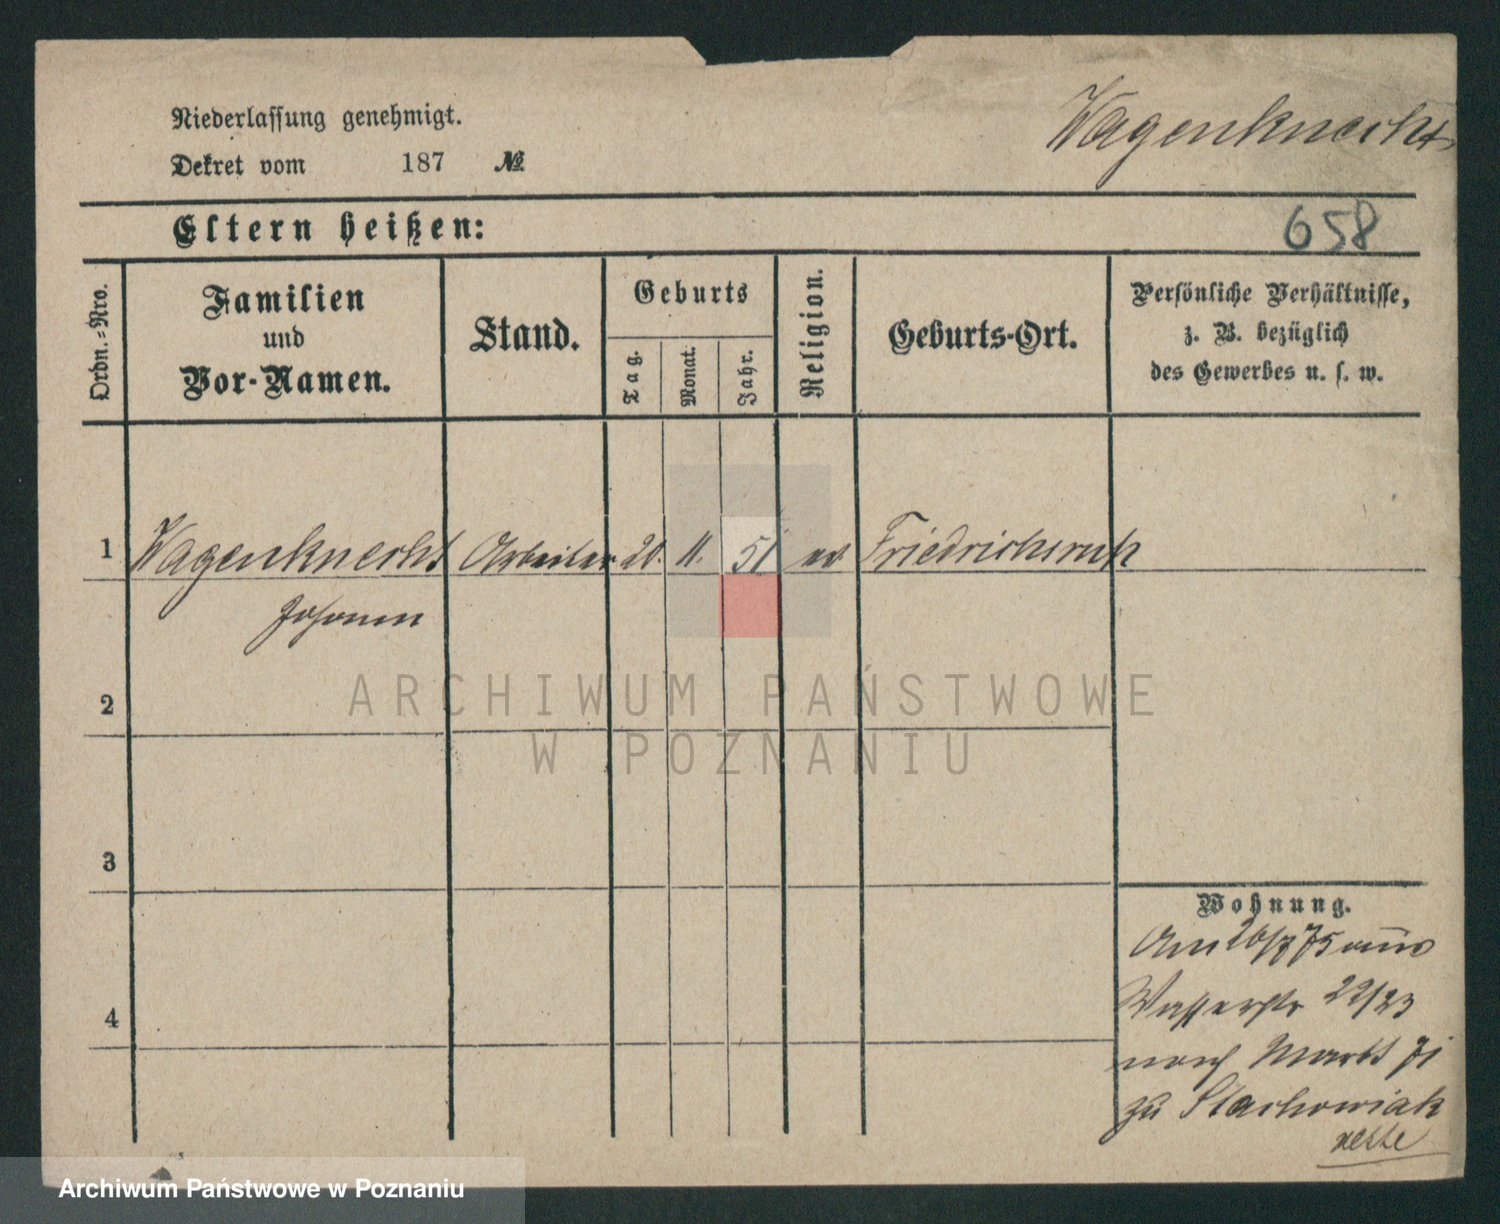 Niederlassung genehmigt.
Wagenknecht
Dekret vom 187 №
Eltern heißen:
658
Ordn.=Nro.
Familien
und
Vor-Namen.
Stand.
Geburts
Tag.
Monat.
Jahr.
Religion.
Geburts-Ort.
Persönliche Verhältnisse,
z. B. bezüglich
des Gewerbes u. s. w.
1 Wagenknecht Arbeiter 20. 11. 51 ev Friedrichsruh
Johann
2
3
4
Wohnung.
Am 26/7 75 aus
Wasserstr 22/23
nach Markt 71
zu Stachowiak
ARCHIWUM PAŃSTWOWE
W POZNANIU
Archiwum Państwowe w Poznaniu